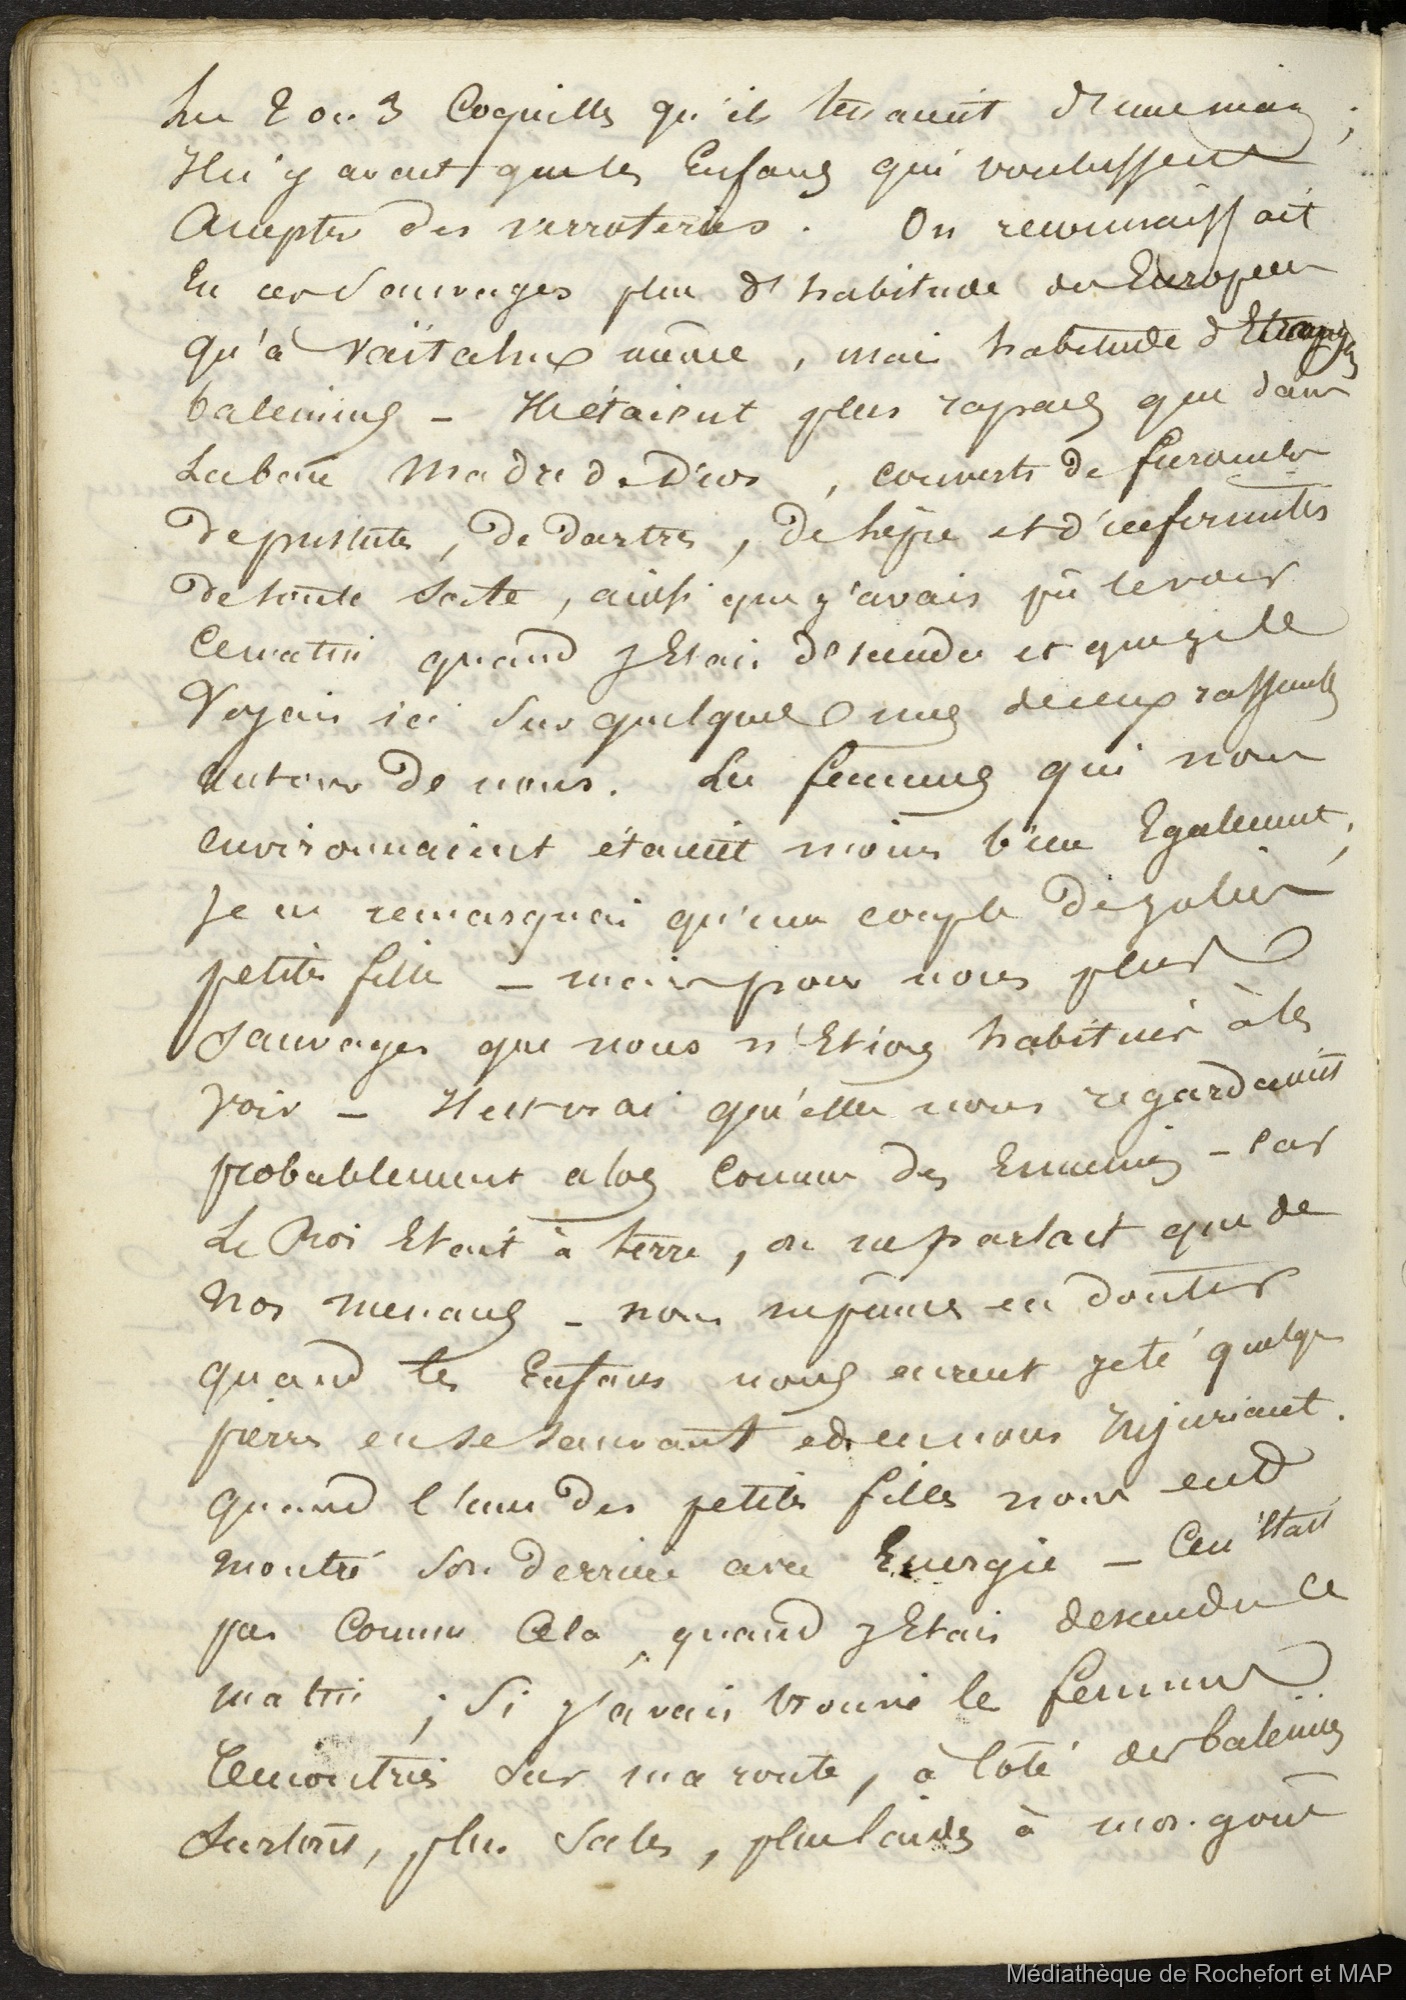 les 2 ou 3 Coquilles qu'ils tenaient d'une main ;
Il n'y avait que les Enfans qui voulussent
accepter des verroteries. On reconnaissait
En ces Sauvages plus d'habitude des Européens
qu'à Vaïtahux même, mais habitude d'
baleiniers — Ils étaient plus rapaces que dans
La baie Madre de Dios, couverts de furoncles
de pustules, de dartres, de lèpre et d'infirmités
de toute sorte, ainsi que j'avais pû le voir
ce matin quand j'Etais descendu et que je le
Voyais ici sur quelques uns de ceux rassemblés
autour de nous. Les femmes qui nous
environnaient étaient moins bien Egalement,
Je ne remarquai qu'un couple de jolies
petites filles — mais pour nous plus
Sauvages que nous n'Etions habitués à les
voir — Il est vrai qu'elles nous regardaient
probablement alors comme des Ennemis — car
Le Roi Etait à terre, on ne parlait que de
nos menaces — nous ne pûmes en douter
quand les Enfans nous eurent jeté quelqs
pierres en se sauvant et en nous Injuriant.
quand l'une des petites filles nous eut
montré son derrière avec Energie — Ce n'était
pas comme cela, quand j'Etais descendu ce
matin ; Si j'avais trouvé les femmes
rencontrées sur ma route, à côté des baleiniers
surtout, plus sales, plus laides à mon goût
Médiathèque de Rochefort et MAP